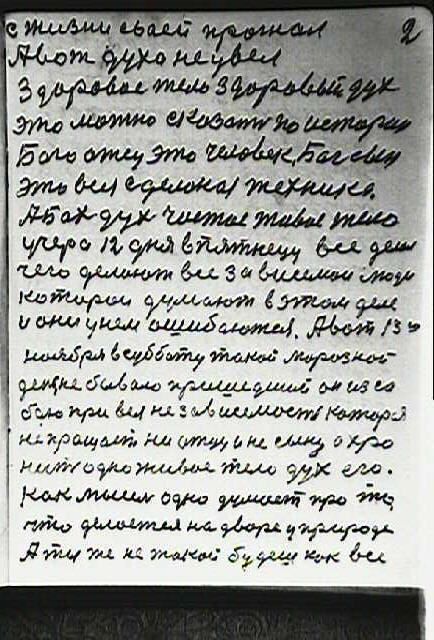 с жизни своей прогнал 2
А вот духа не увел
Здоровое тело Здоровый дух
это можно сказать по истории
Бога отец это человек, Бог сын
это вся сделоная техника.
А Бог дух чистое живое тело
учера 12 дня в пятнецу все дела
чего делают все зависемои люди
которои думают в этом деле
и они у нем ошибаются. А вот 13 го
ноября в субботу такой морозной
день не бывало пришедший он из со
бою при вел не зависемость которая
не пращает ни отцу а не сыну а хро
нит одно живое тело дух его.
Как мысль одно думает про то,
что делоется на дворе у природе
А ты же не такой будеш как все